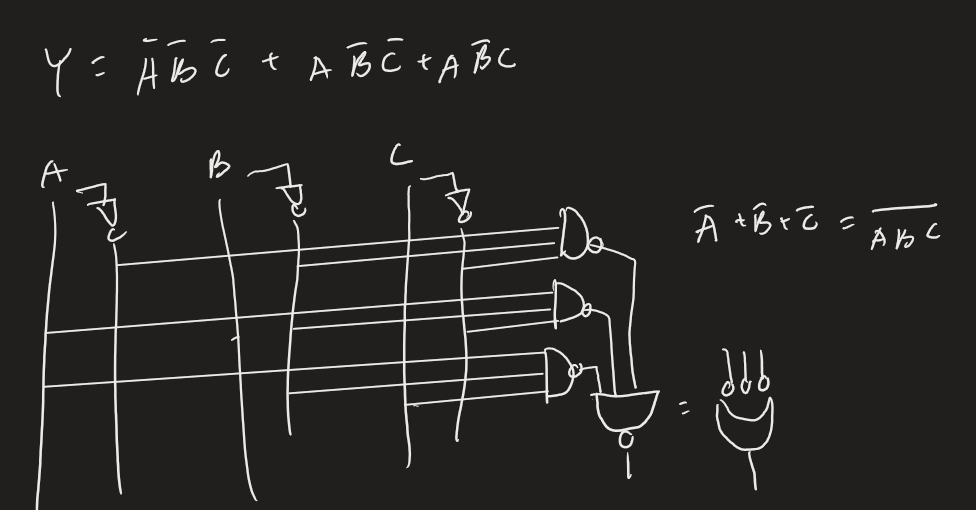 Y = A̅ B̅ C̅ + A B̅ C̅ + A B̅ C
A B C
A̅ + B̅ + C̅ = A̅B̅C̅
=